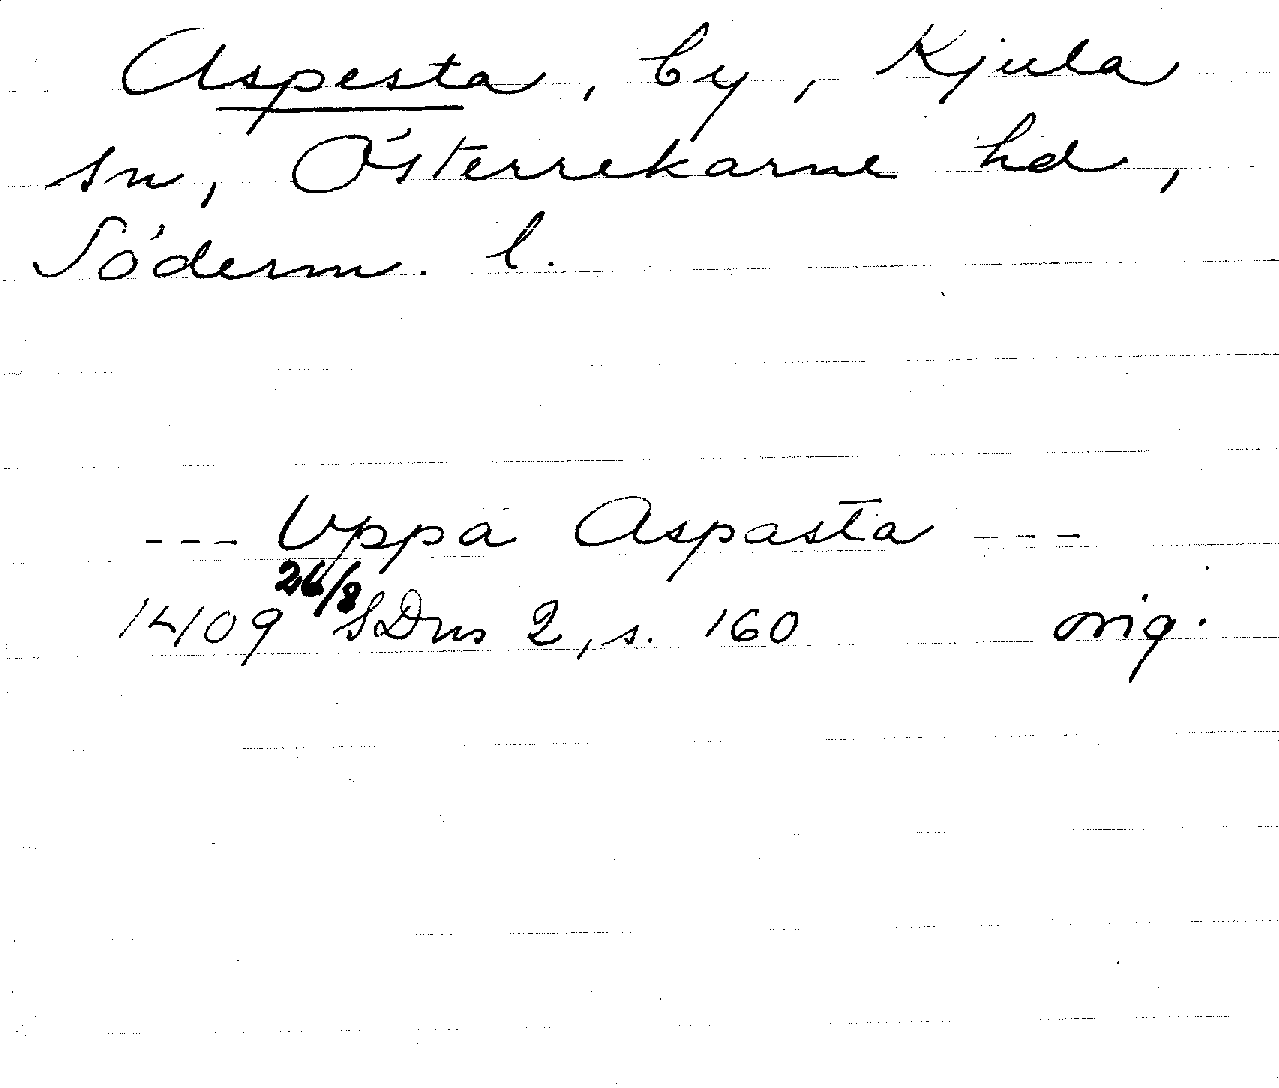 Aspesta, by, Kjula
sn, Österrekarne hd,
Söderm. l.
--- Uppa Aspasta ---
1409 26/8 SDns 2, s. 160 orig.